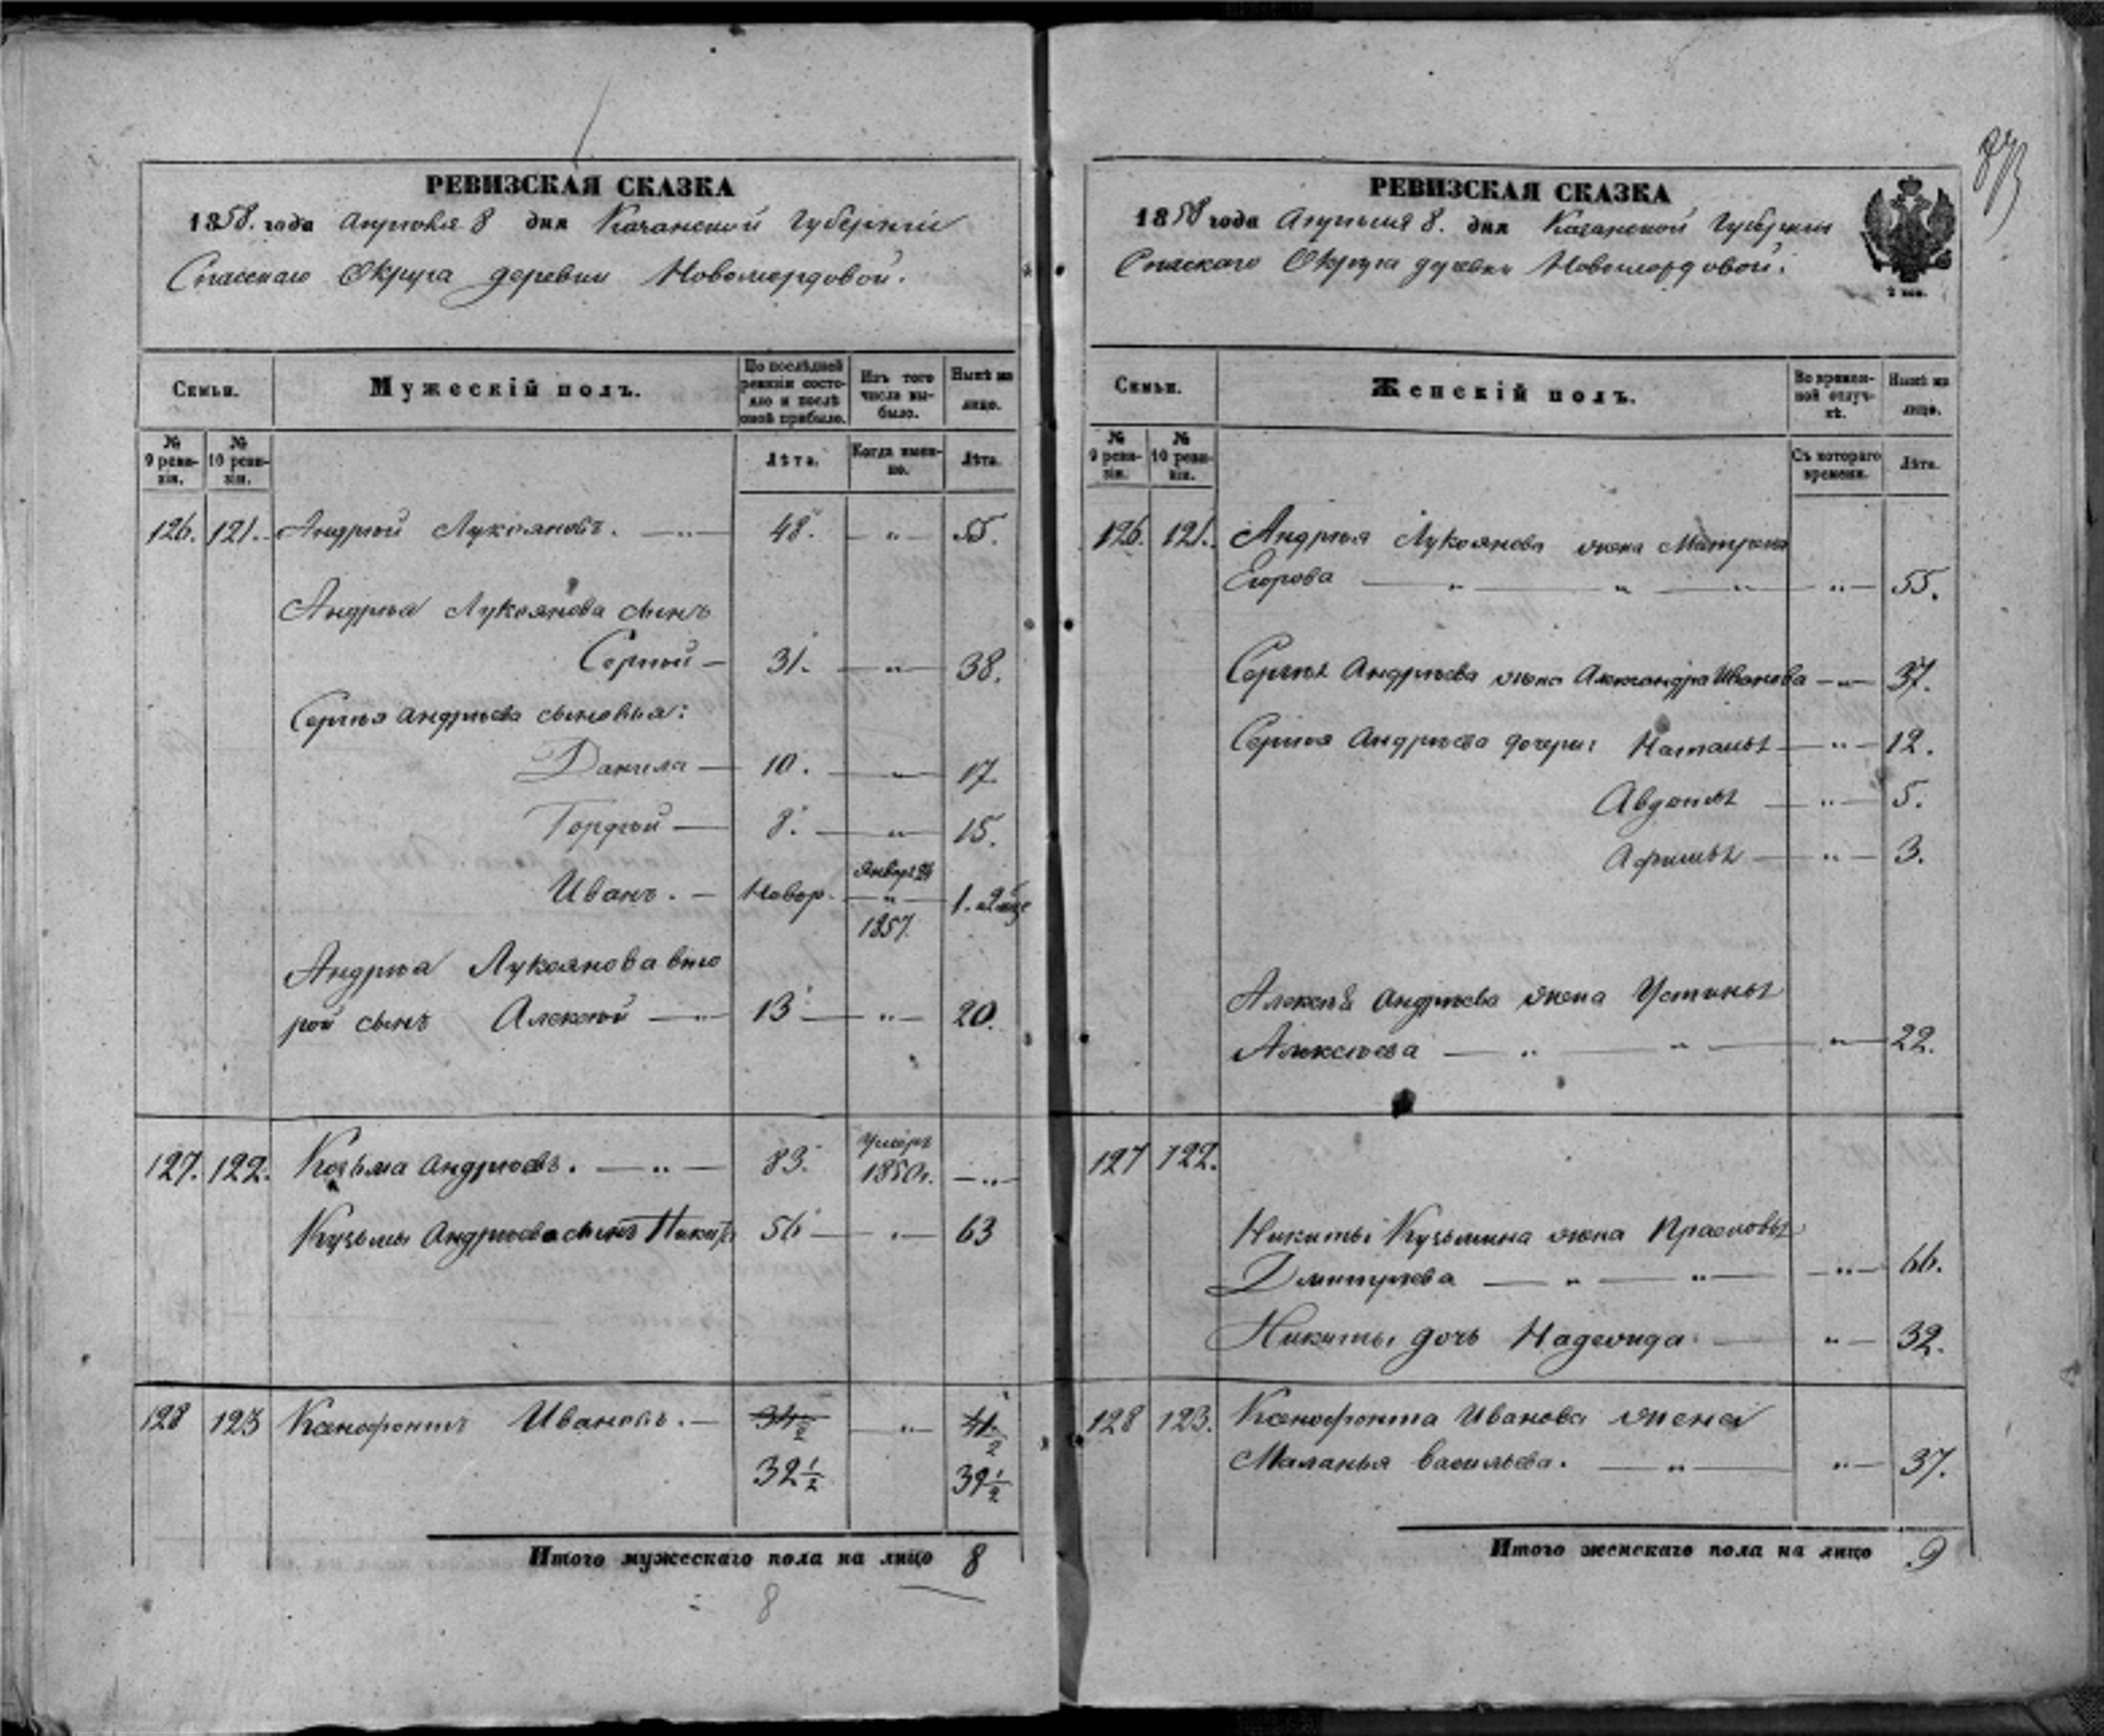 РЕВИЗСКАЯ СКАЗКА
1858. года Апрѣля 8 дня Казанской Губерніи
Спасскаго Округа деревни Новомордовой.
Семьи.
Мужескій полъ.
По послѣдней ревизіи состояло и послѣ оной прибыло.
Изъ того числа выбыло.
Нынѣ на лицо.
№ 9 ревизіи.
№ 10 ревизіи.
Лѣта.
Когда именно.
Лѣта.
126. 121. Андрѣй Лукояновъ. — „ — 48. — „ — 55.
Андрѣа Лукоянова сынъ
Сергѣй — 31. — „ — 38.
Сергѣя Андрѣева сыновья:
Данила — 10. — „ — 17.
Гордѣй — 8. — „ — 15.
Иванъ. — Новор. Январ 24 „ 1857. 1. 2 мѣс
Андрѣа Лукоянова вто
рой сынъ Алексѣй — „ 13 — „ — 20.
127. 122. Козьма Андрѣевъ. — „ — 83. Умеръ 1850г. — „ —
Кузьмы Андрѣева сынъ Никита 56 — „ — 63
128 123 Ксенофонтъ Ивановъ. — 34 1/2 — „ — 41 1/2
32 1/2 39 1/2
Итого мужескаго пола на лицо 8
8
РЕВИЗСКАЯ СКАЗКА
1858 года Апрѣля 8. дня Казанской Губерніи
Спаскаго Округа деревни Новомордовой.
2 коп.
Семьи.
Женскій полъ.
Во временной отлучкѣ.
Нынѣ на лицо.
№ 9 ревизіи.
№ 10 ревизіи.
Съ котораго времени.
Лѣта.
126. 121. Андрѣя Лукоянова жена Матрена
Егорова — „ — „ — „ — „ — 55.
Сергѣя Андрѣева жена Александра Иванова — „ — 37.
Сергѣя Андрѣева дочери: Наталья — „ — 12.
Авдотья — „ — 5.
Афимья — „ — 3.
Алексѣя Андрѣева жена Устинья
Алексѣева — „ — „ — „ — 22.
127 122.
Никиты Кузьмина жена Прасковья
Дмитрѣева — „ — „ — „ — 66.
Никиты дочь Надежда — „ — 32.
128 123. Ксенофонта Иванова жена
Маланья Васильева. — „ — „ — 37.
Итого женскаго пола на лицо 9